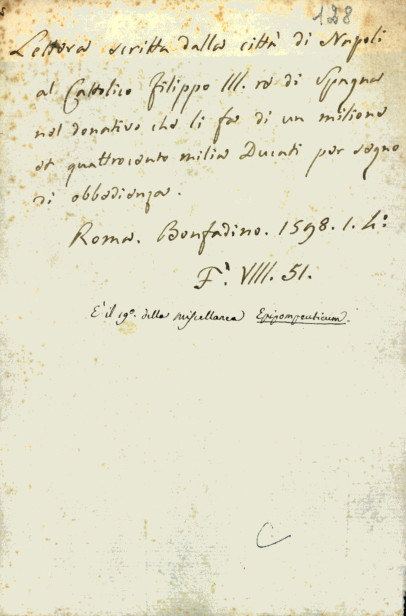 128
Lettera scritta dalla città di Napoli
al Cattolico Filippo III. re di Spagna
nel donativo che li fa di un milione
et quattrocento milia Ducati per segno
di obbedienza.
Roma. Bonfadino. 1598. 1. 4:°
F. VIII. 51.
E' il 19°. della miscellanea Epipompeuticum.
C